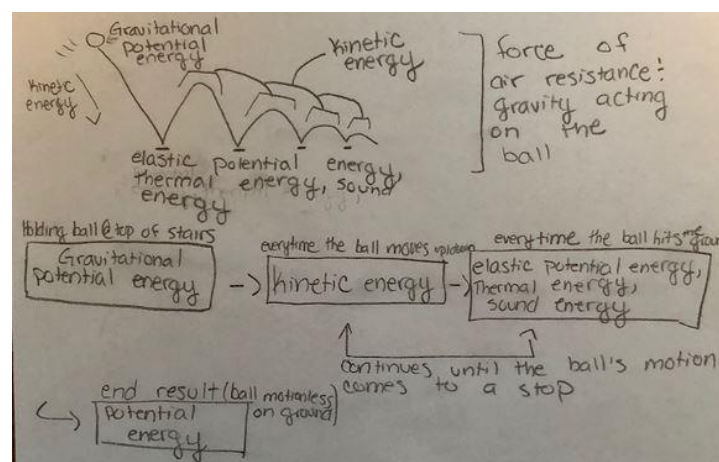 Gravitational
potential
energy
kinetic
energy
kinetic
energy
force of
air resistance:
gravity acting
on the
ball
elastic potential energy,
thermal energy, sound
energy
Holding ball @ top of stairs
Gravitational
potential energy
everytime the ball moves up/down
kinetic energy
everytime the ball hits the ground
elastic potential energy,
Thermal energy,
sound energy
continues until the ball's motion
comes to a stop
end result (ball motionless
on ground)
potential
energy